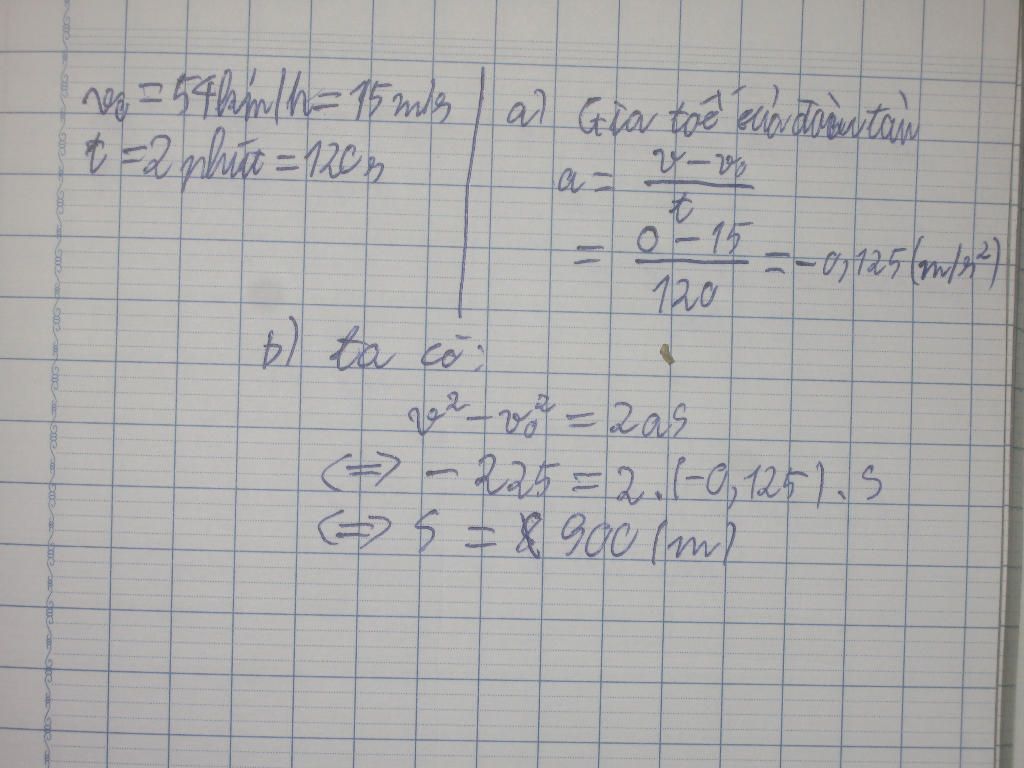 v₀ = 54km/h = 15m/s
t = 2 phút = 120s
a) Gia tốc của đoàn tàu
a = (v - v₀)/t
= (0 - 15)/120 = -0,125 (m/s²)
b) ta có:
v² - v₀² = 2as
<=> - 225 = 2.(-0,125).s
<=> s = 900 (m)